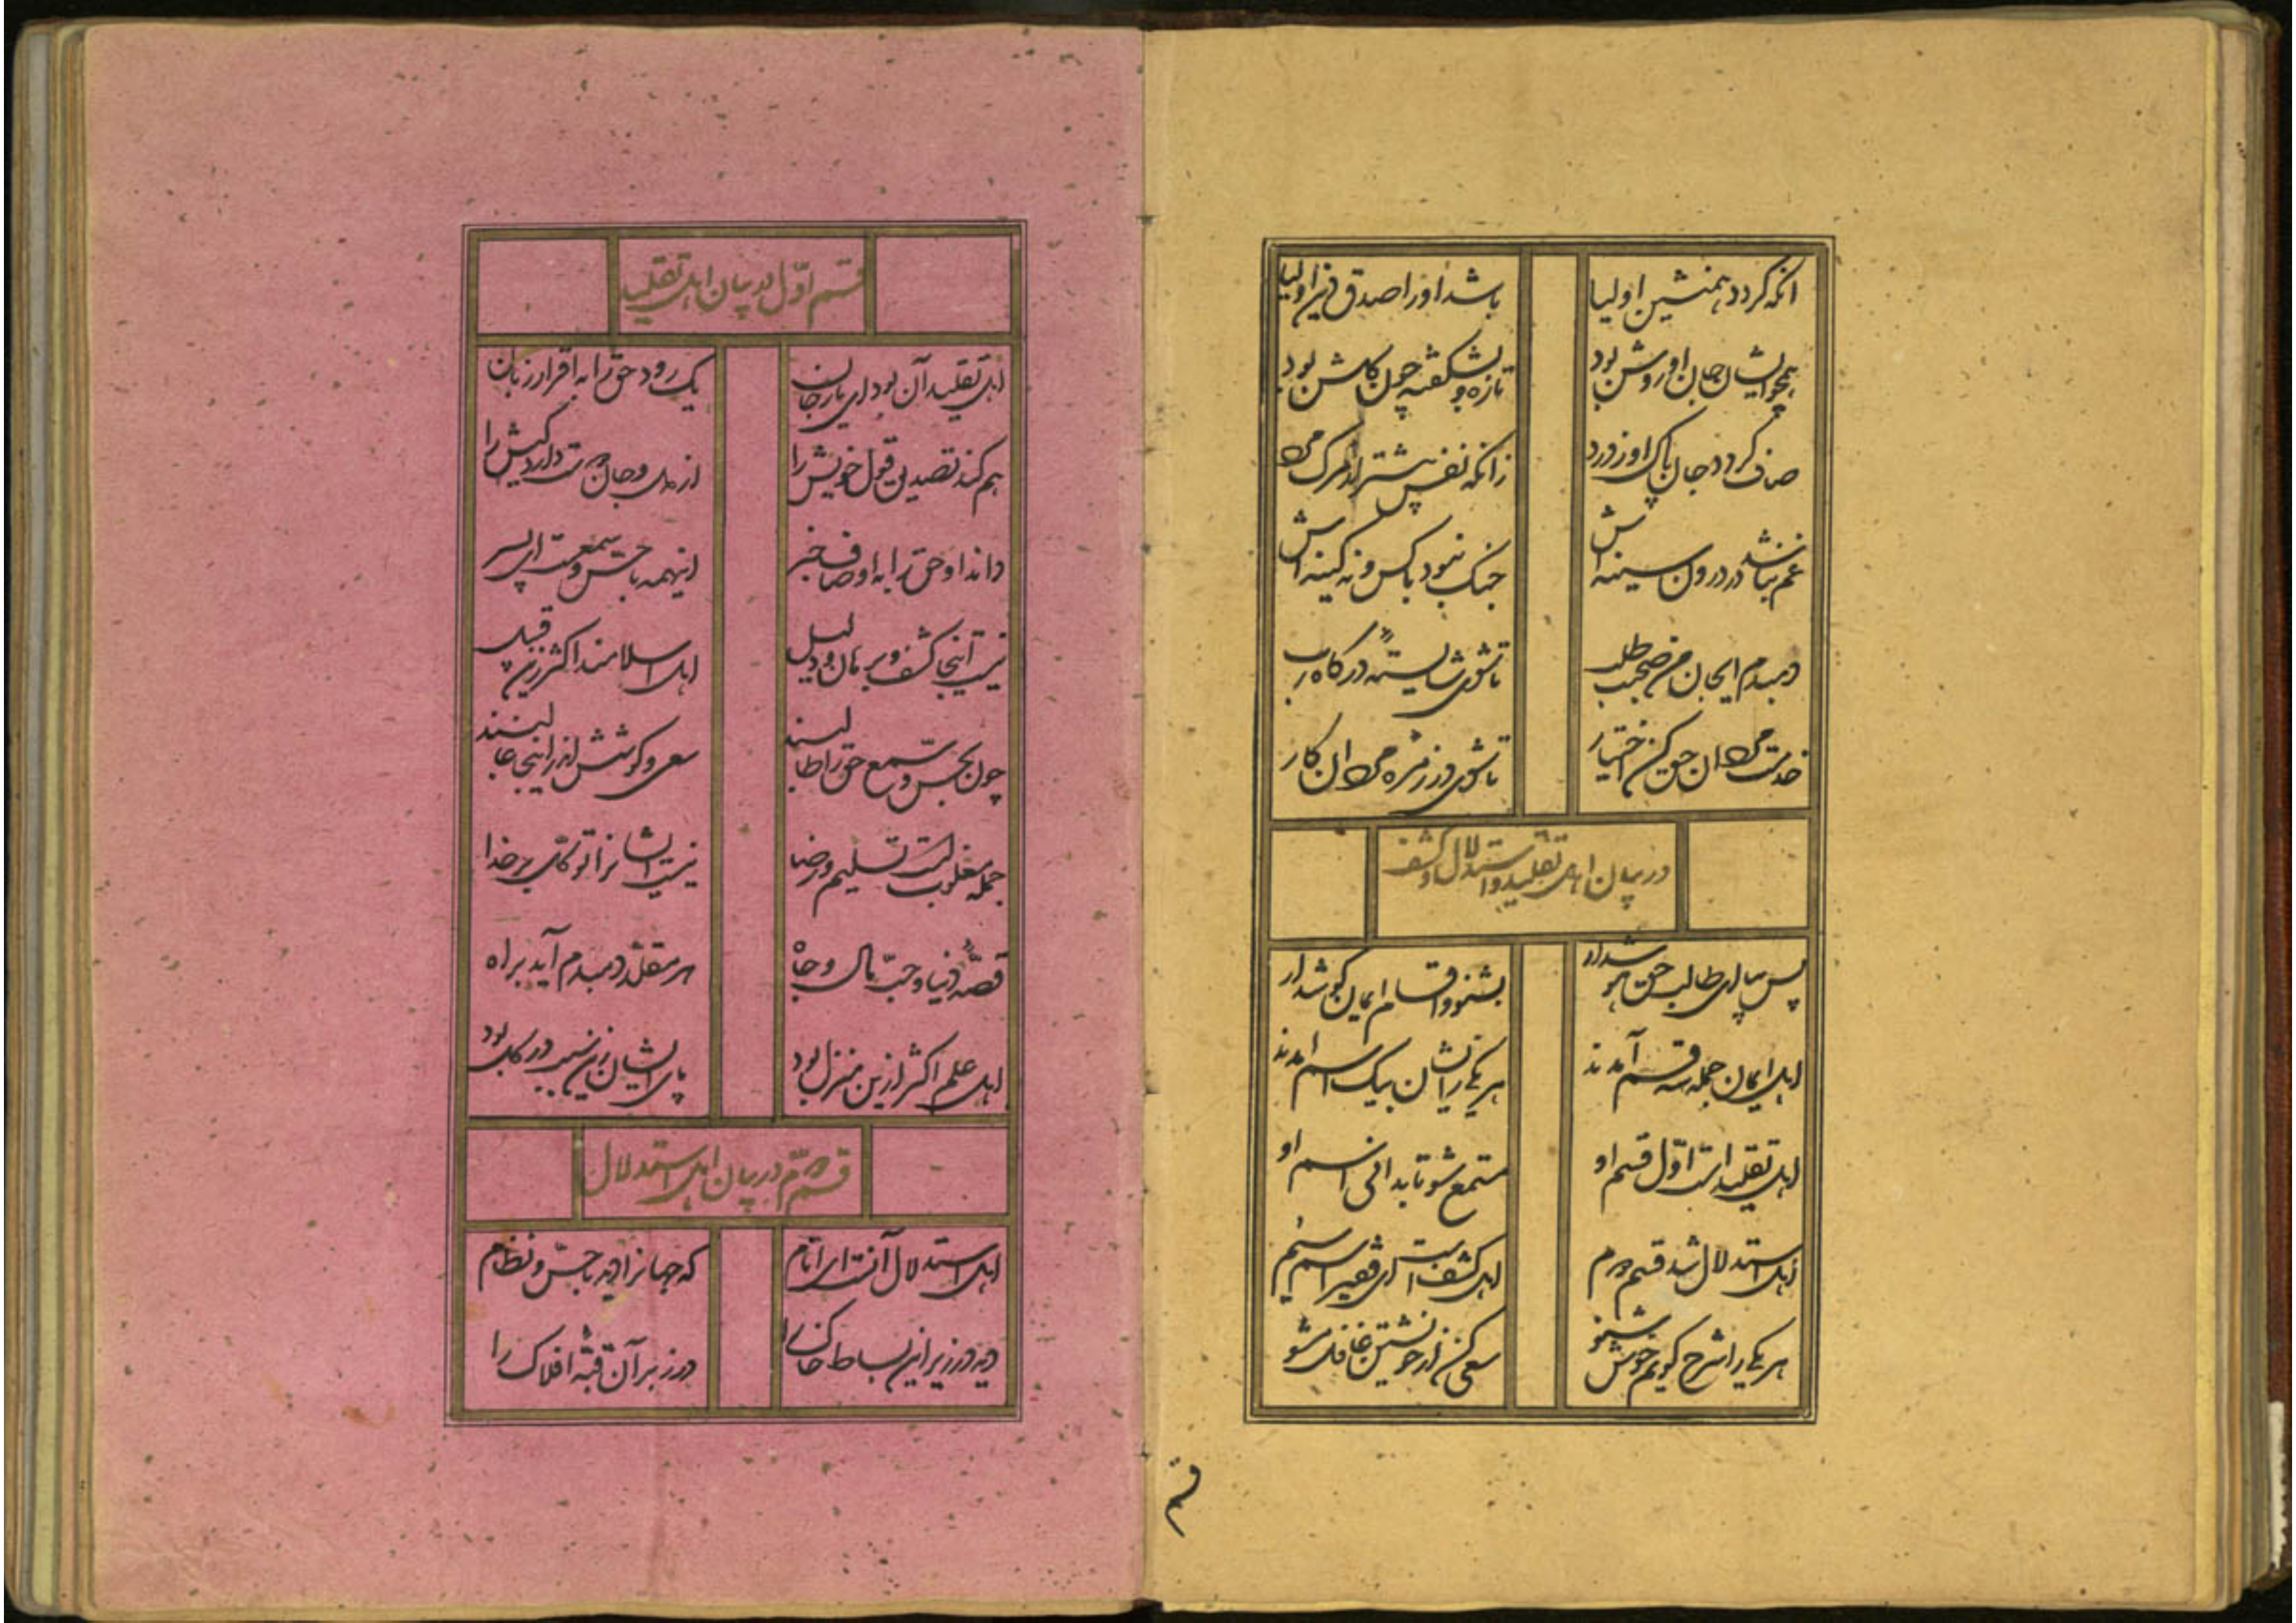 آنکه کردد همنشین اولیا باشد او را صدق فیر اولیا
همچو ایشان جان او روشن بود تازه و بشکفته چون کلشن بود
صاف کردد جان پاک او ز درد زانکه نفس پیشتر از مرک مرد
غم نباشد در درون سینه اش جنک نبود با کس و نه کینه اش
دمبدم ایجان من صحبت طلب تا شوی شایستهٔ درکاه رب
خدمت مردان حق کن اختیار تا شوی در زمرهٔ مردان کار
در بیان اهل تقلید و استدلال و کشف
پس بیا ای طالب حق هوشدار بشنو و اقسام ایمان کوشدار
اهل ایمان جمله سه قسم آمدند هر یکی زایشان بیک اسم آمدند
اهل تقلید است اول قسم او مستمع شو تا بدانی اسم او
اهل استدلال شد قسم دوم اهل کشف است ای فقیر اسم سیم
هر یکی را شرح کویم خوش شنو سعی کن از خویشتن غافل مشو
قسم
قسم اوّل در بیان اهل تقلید
اهل تقلید آن بود ای یار جان یک رود حق را به اقرار زبان
هم کند تصدیق قول خویش را از دل و جان دوست دارد کیش را
داند او حق را به اوصاف خبر اینهمه با حس و سمعست ای پسر
نیست آنجا کشف و برهان و دلیل اهل اسلامند اکثر زین قبیل
چون بحس و سمع حق را طالبند سعی و کوشش اندر اینجا غالبند
جمله مغلوبست تسلیم و رضا نیست ایشانرا توکّل بر خدا
قصّهٔ دنیا و حبّ مال و جاه هر مقلد دمبدم آید براه
اهل علم اکثر ازین منزل بود پای ایشان زین سبب در کل بود
قسم دوّم در بیان اهل استدلال
اهل استدلال آنست ای انام که جهانرا دید با حسّ و نظام
دید در زیر این بساط خاک را در زبر آن قبّهٔ افلاک را